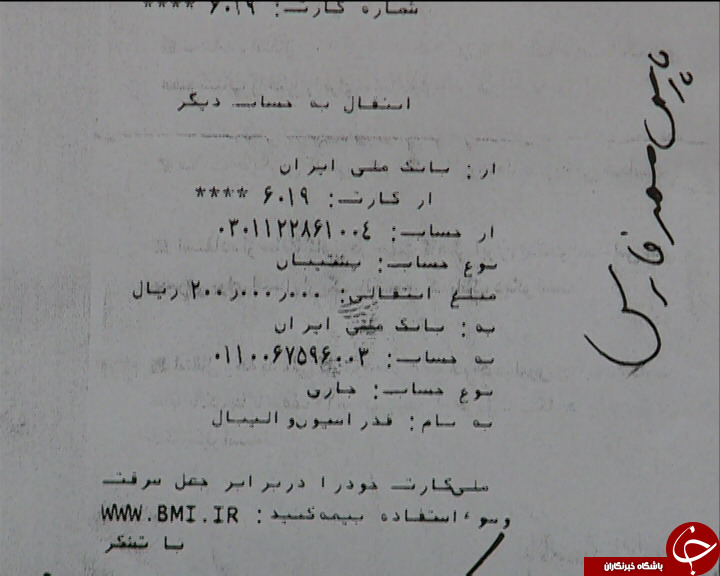 شماره کارت: ۶۰۱۹ ****
انتقال به حساب دیگر
از: بانک ملی ایران
از کارت: ۶۰۱۹ ****
از حساب: ۰۳۰۱۱۲۲۸۶۱۰۰۴
نوع حساب: پشتیبان
مبلغ انتقالی: ۲۰۰٫۰۰۰٫۰۰۰ ریال
به: بانک ملی ایران
به حساب: ۰۱۱۰۰۶۷۵۹۶۰۰۳
نوع حساب: جاری
به نام: فدراسیون والیبال
ملی‌کارت خود را در برابر جعل سرقت
و سوء استفاده بیمه کنید: WWW.BMI.IR
با تشکر
فارس
باشگاه خبرنگاران